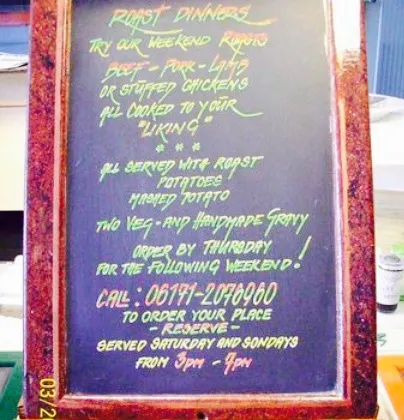 ROAST DINNERS
TRY OUR WEEKEND ROASTS
BEEF - PORK - LAMB
OR STUFFED CHICKENS
ALL COOKED TO YOUR
"LIKING"
* * *
ALL SERVED WITH ROAST
POTATOES
MASHED POTATO
TWO VEG - AND HANDMADE GRAVY
ORDER BY THURSDAY
FOR THE FOLLOWING WEEKEND!
CALL: 06171-2076960
TO ORDER YOUR PLACE
- RESERVE -
SERVED SATURDAY AND SONDAYS
FROM 3PM - 9PM
03/2